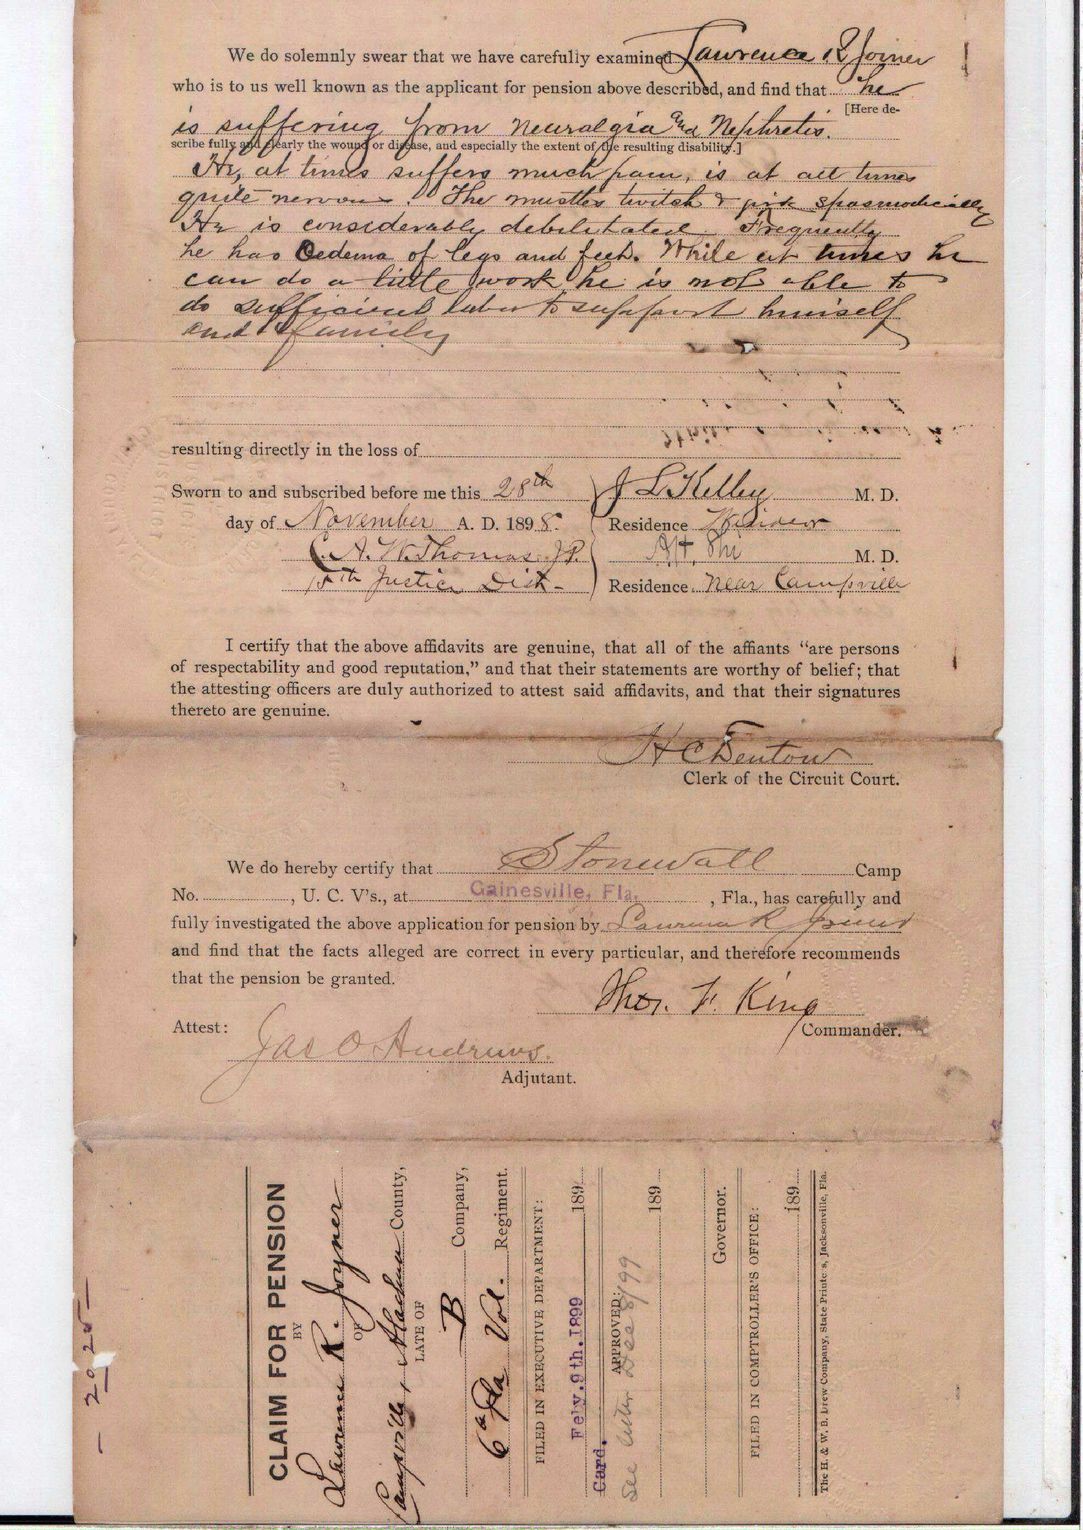 We do solemnly swear that we have carefully examined Lawrence R Joiner
who is to us well known as the applicant for pension above described, and find that he
[Here de-
is suffering from Neuralgia and Nephretis.
scribe fully and clearly the wound or disease, and especially the extent of the resulting disability.]
He, at times suffers much pain, is at all times
quite nervous. The mustles twitch & jirk spasmodically
He is considerably debilitated Frequently
he has Oedema of legs and feet. While at times he
can do a little work, he is not able to
do sufficient labor to support himself
and family
resulting directly in the loss of
Sworn to and subscribed before me this 28th
day of November A. D. 1898.
C. A. W. Thomas J.P.
5th Justice Dist -
J L Kelley M. D.
Residence Windsor
M. D.
Residence Near Campville
I certify that the above affidavits are genuine, that all of the affiants "are persons
of respectability and good reputation," and that their statements are worthy of belief; that
the attesting officers are duly authorized to attest said affidavits, and that their signatures
thereto are genuine.
H C Denton
Clerk of the Circuit Court.
We do hereby certify that Stonewall Camp
No. , U. C. V's., at Gainesville, Fla. , Fla., has carefully and
fully investigated the above application for pension by R
and find that the facts alleged are correct in every particular, and therefore recommends
that the pension be granted.
Thos. F. King
Commander.
Attest:
Jas O Andrews.
Adjutant.
CLAIM FOR PENSION
BY
Lawrence R. Joyner
OF
Campville, Alachua County,
LATE OF
B Company,
6th Fla Vol. Regiment.
FILED IN EXECUTIVE DEPARTMENT:
Feby. 9th. 1899 189
Card.
APPROVED:
See letter Dec 8/99 189
Governor.
FILED IN COMPTROLLER'S OFFICE:
189
The H. & W. B. Drew Company, State Printers, Jacksonville, Fla.